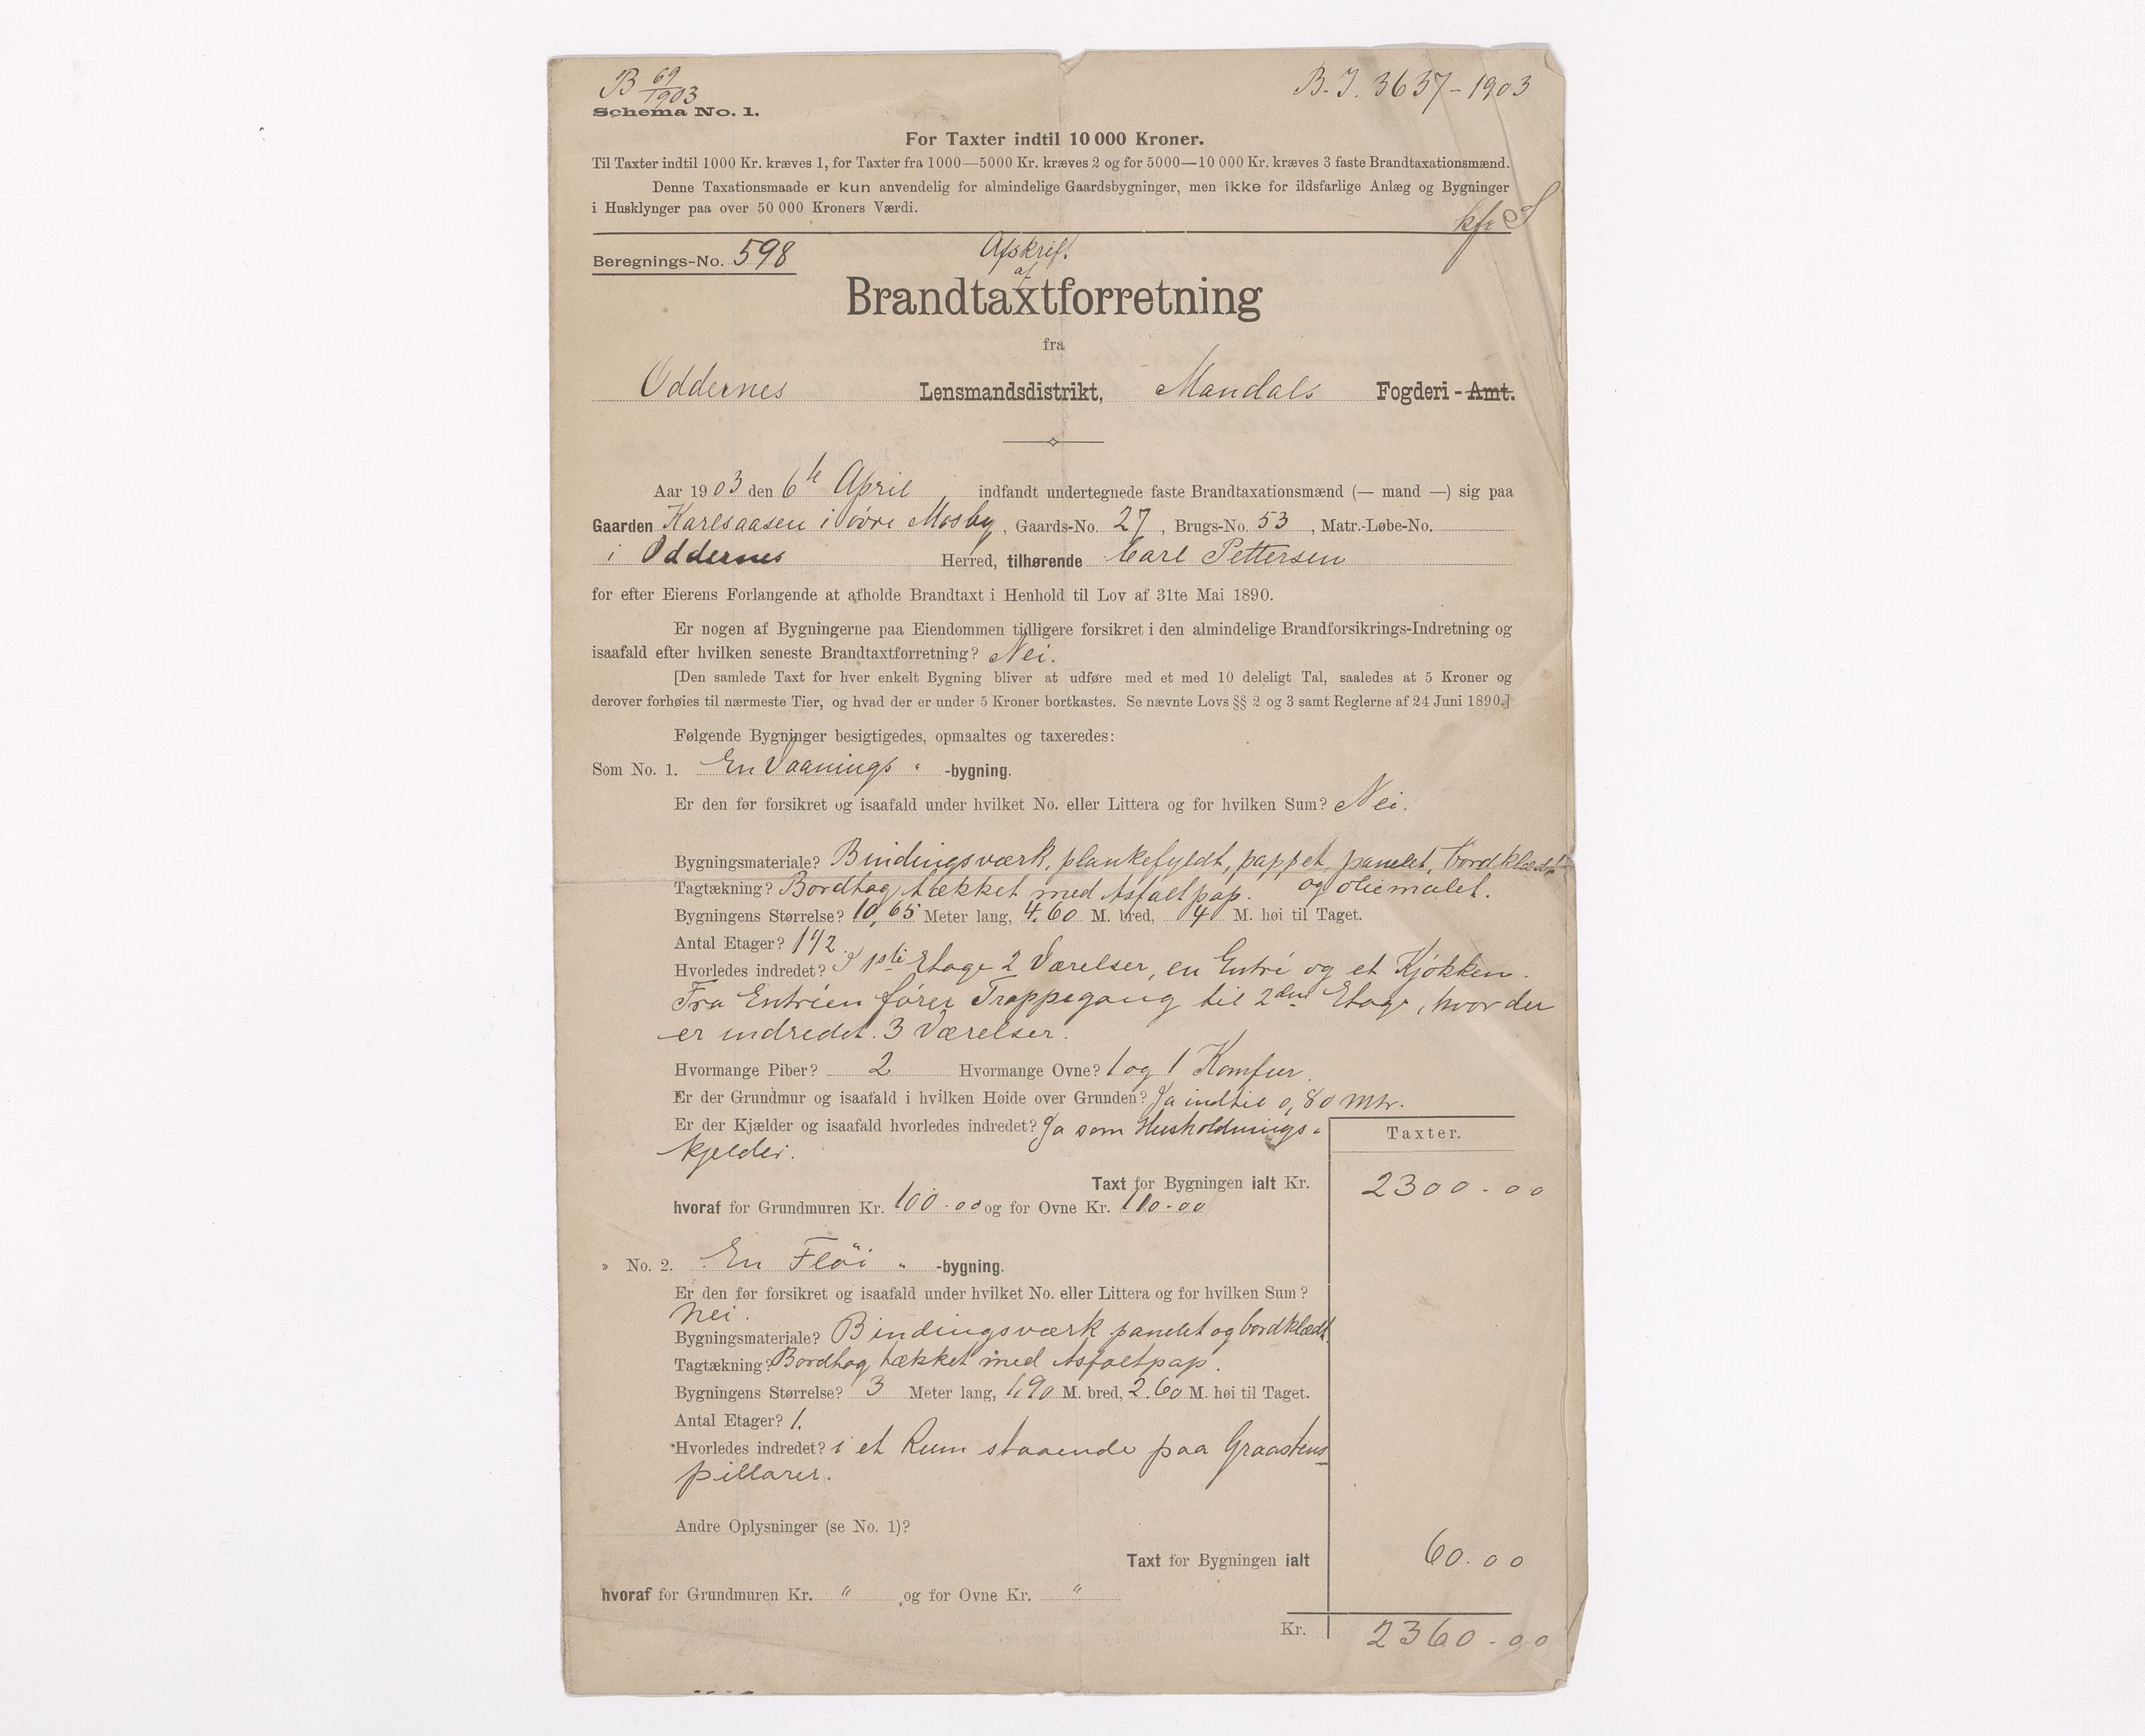 B 69/1903
B. J. 3637-1903
Schema No. 1.
For Taxter indtil 10 000 Kroner.
Til Taxter indtil 1000 Kr. kræves 1, for Taxter fra 1000—5000 Kr. kræves 2 og for 5000—10 000 Kr. kræves 3 faste Brandtaxationsmænd.
Denne Taxationsmaade er kun anvendelig for almindelige Gaardsbygninger, men ikke for ildsfarlige Anlæg og Bygninger
i Husklynger paa over 50 000 Kroners Værdi.
Beregnings-No. 598
Afskrift
af
Brandtaxtforretning
fra
Oddernes Lensmandsdistrikt, Mandals Fogderi - Amt.
Aar 1903 den 6te April, indfandt undertegnede faste Brandtaxationsmænd (— mand —) sig paa
Gaarden Karlsaasen i øvre Mosby, Gaards-No. 27, Brugs-No. 53, Matr.-Løbe-No.
i Oddernes Herred, tilhørende Carl Pettersen
for efter Eierens Forlangende at afholde Brandtaxt i Henhold til Lov af 31te Mai 1890.
Er nogen af Bygningerne paa Eiendommen tidligere forsikret i den almindelige Brandforsikrings-Indretning og
isaafald efter hvilken seneste Brandtaxtforretning? Nei.
[Den samlede Taxt for hver enkelt Bygning bliver at udføre med et med 10 deleligt Tal, saaledes at 5 Kroner og
derover forhøies til nærmeste Tier, og hvad der er under 5 Kroner bortkastes. Se nævnte Lovs §§ 2 og 3 samt Reglerne af 24 Juni 1890.]
Følgende Bygninger besigtigedes, opmaaltes og taxeredes:
Som No. 1. En Vaanings " -bygning.
Er den før forsikret og isaafald under hvilket No. eller Littera og for hvilken Sum? Nei.
Bygningsmateriale? Bindingsværk, plankefyldt, pappet, panelet, bordklædt
Tagtækning? Bordtag, tækket med Asfaltpap. og oliemalet.
Bygningens Størrelse? 10,65 Meter lang, 4,60 M. bred, 4 M. høi til Taget.
Antal Etager? 1 1/2.
Hvorledes indredet? I 1ste Etage 2 Værelser, en Entré og et Kjøkken.
Fra Entréen fører Trappegang til 2den Etage, hvor der
er indredet 3 Værelser.
Hvormange Piber? 2 Hvormange Ovne? 1 og 1 Komfur.
Er der Grundmur og isaafald i hvilken Høide over Grunden? Ja indtil 0,80 Mtr.
Er der Kjælder og isaafald hvorledes indredet? Ja som Husholdnings-
kjelder.
Taxter.
Taxt for Bygningen ialt Kr. 2300.00
hvoraf for Grundmuren Kr. 100.00 og for Ovne Kr. 110.00
» No. 2. En Fløi " -bygning.
Er den før forsikret og isaafald under hvilket No. eller Littera og for hvilken Sum?
Nei.
Bygningsmateriale? Bindingsværk panelet og bordklædt
Tagtækning? Bordtag, tækket med Asfaltpap.
Bygningens Størrelse? 3 Meter lang, 1,90 M. bred, 2.60 M. høi til Taget.
Antal Etager? 1.
Hvorledes indredet? i et Rum staaende paa Graastens
pillarer.
Andre Oplysninger (se No. 1)?
Taxt for Bygningen ialt 60.00
hvoraf for Grundmuren Kr. " og for Ovne Kr. "
Kr. 2360.00